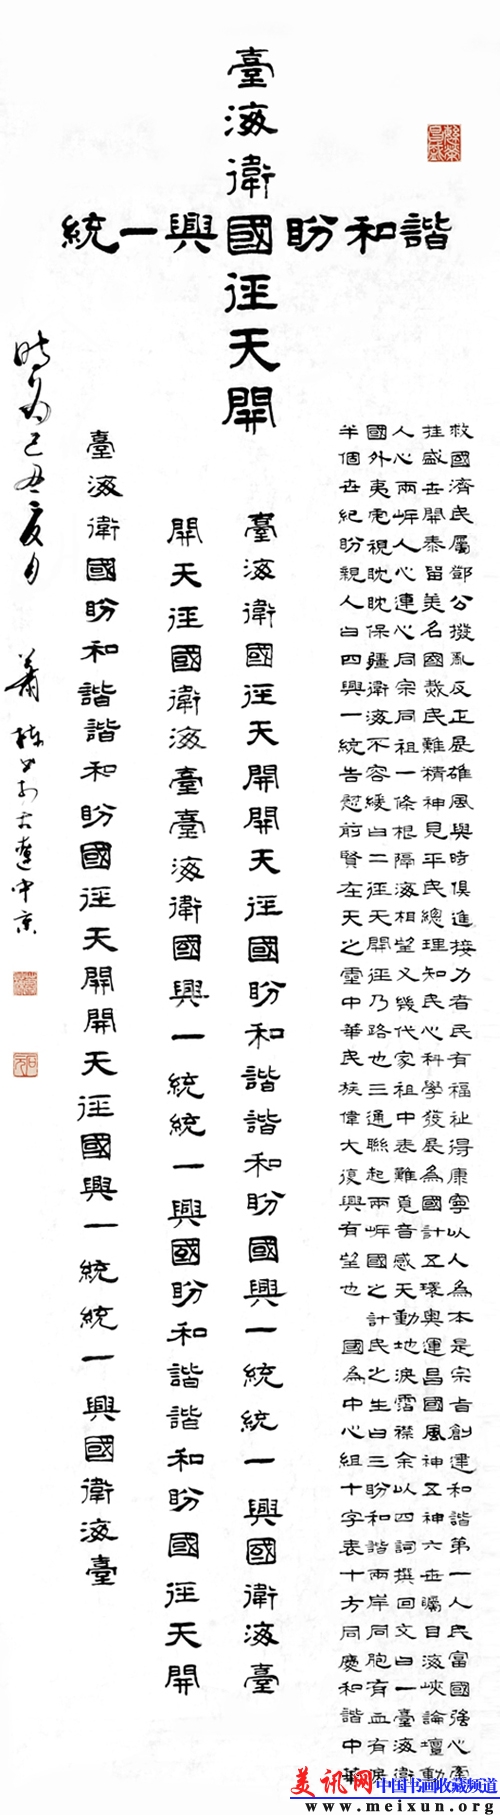 臺海衛國徑天開
諧和盼國興一統
救國濟民屬鄧公撥亂反正展雄風與時俱進接力者民有福祉得康寧以人為本是宗旨創運和諧第一人民富國強心
往盛世開泰留美名國慼民難精神見平民總理知民心科學發展為國計五環奧運昌國風神五神六世矚目海峽論壇動
人心兩岸人心連心同宗同祖一條根隔海相望又幾代家祖中表難覓音感天動地淚霑襟余以四詞撰回文曰一臺海衛
國外夷虎視眈眈保疆衛海不容緩曰二徑天開徑乃路也三通聯起兩岸國之計民之生曰三盼和諧兩岸同胞有血有
半個世紀盼親人曰四興一統告慰前賢在天之靈中華民族偉大復興有望也 國為中心組十字表十方同慶和諧中華
臺海衛國徑天開開天徑國盼和諧諧和盼國興一統統一興國衛海臺
開天徑國衛海臺臺海衛國興一統統一興國盼和諧諧和盼國徑天開
臺海衛國盼和諧諧和盼國徑天開開天徑國興一統統一興國衛海臺
時為己丑夏月 蕭
中京
美讯网 中国书画收藏频道
www.meixun.org